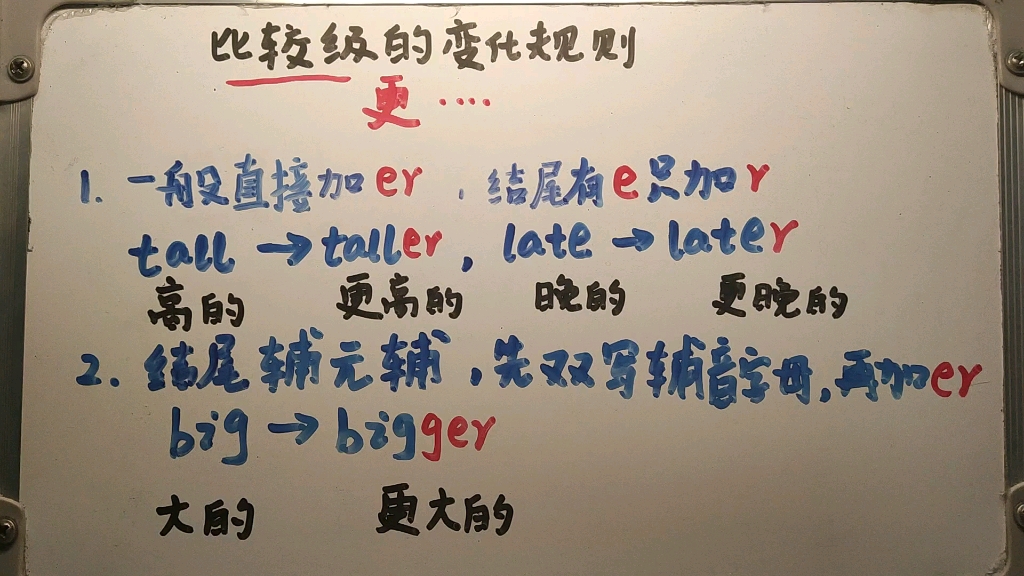 比较级的变化规则
更····
1. 一般直接加er，结尾有e只加r
tall → taller, late → later
高的 更高的 晚的 更晚的
2. 结尾辅元辅，先双写辅音字母，再加er
big → bigger
大的 更大的